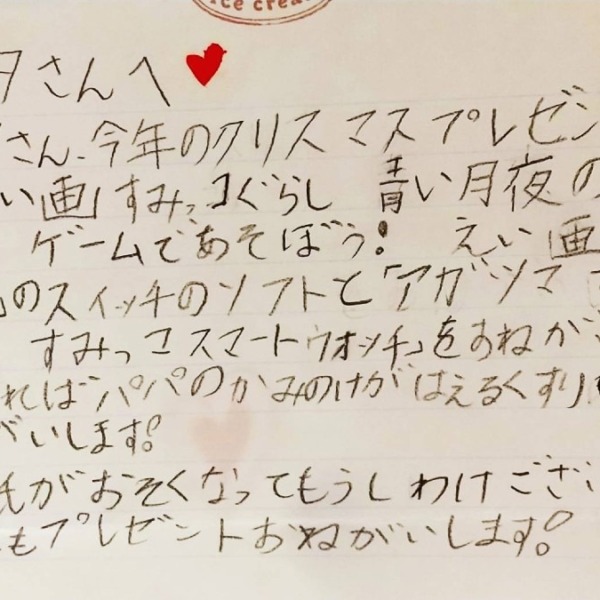 ice crea
タさんへ
さん、今年のクリスマスプレゼン
い画すみっコぐらし 青い月夜の
ゲームであそぼう! えい画
のスイッチのソフトと「アガツマ
すみっコスマートウォッチ」をおねが
ればパパのかみのけがはえるくすり
がいします。
紙がおそくなってもうしわけござ
もプレゼントおねがいします。